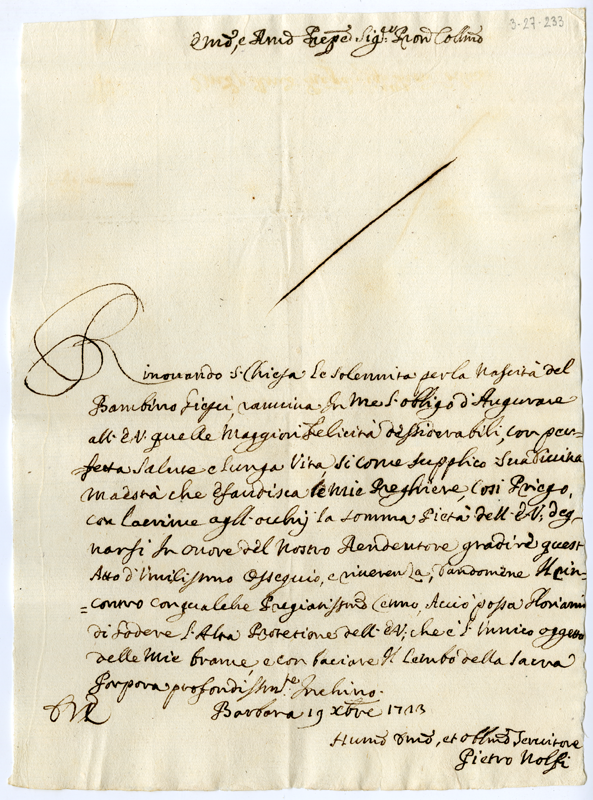 3-27-233
Emo, e Rmo Prpe Sig.re Pron Collmo
Rinovando S. Chiesa le Solennità per la Nascità del
Bambino Giesù, raviva In me l'obligo d'Augurare
all'E.V. quelle Maggiori Felicità dessiderabili, con per-
fetta Salute e lunga Vita, si come supplico Sua divina
Maestà che esaudisca le mie Preghiere, Cosi Priego,
con lacrime agl'occhij la somma Pietà dell'E.V. deg-
narsi In onore del Nostro Rendentore gradire quest
Atto d'Umilissmo Ossequio, e riverenza, dandomene Il rin-
=contro con qualche Pregiatissmo Cenno, Acciò possa
di Godere l'Alta Protetione dell'E.V. che è l'unnico oggetto
delle Mie brame, e con baciare Il Lembo della Sacra
Porpora profondissm.te Inchino.
Barbara 19 Xbre 1713
Humo Dmo, et obblmo Servitore
Pietro Nolfi